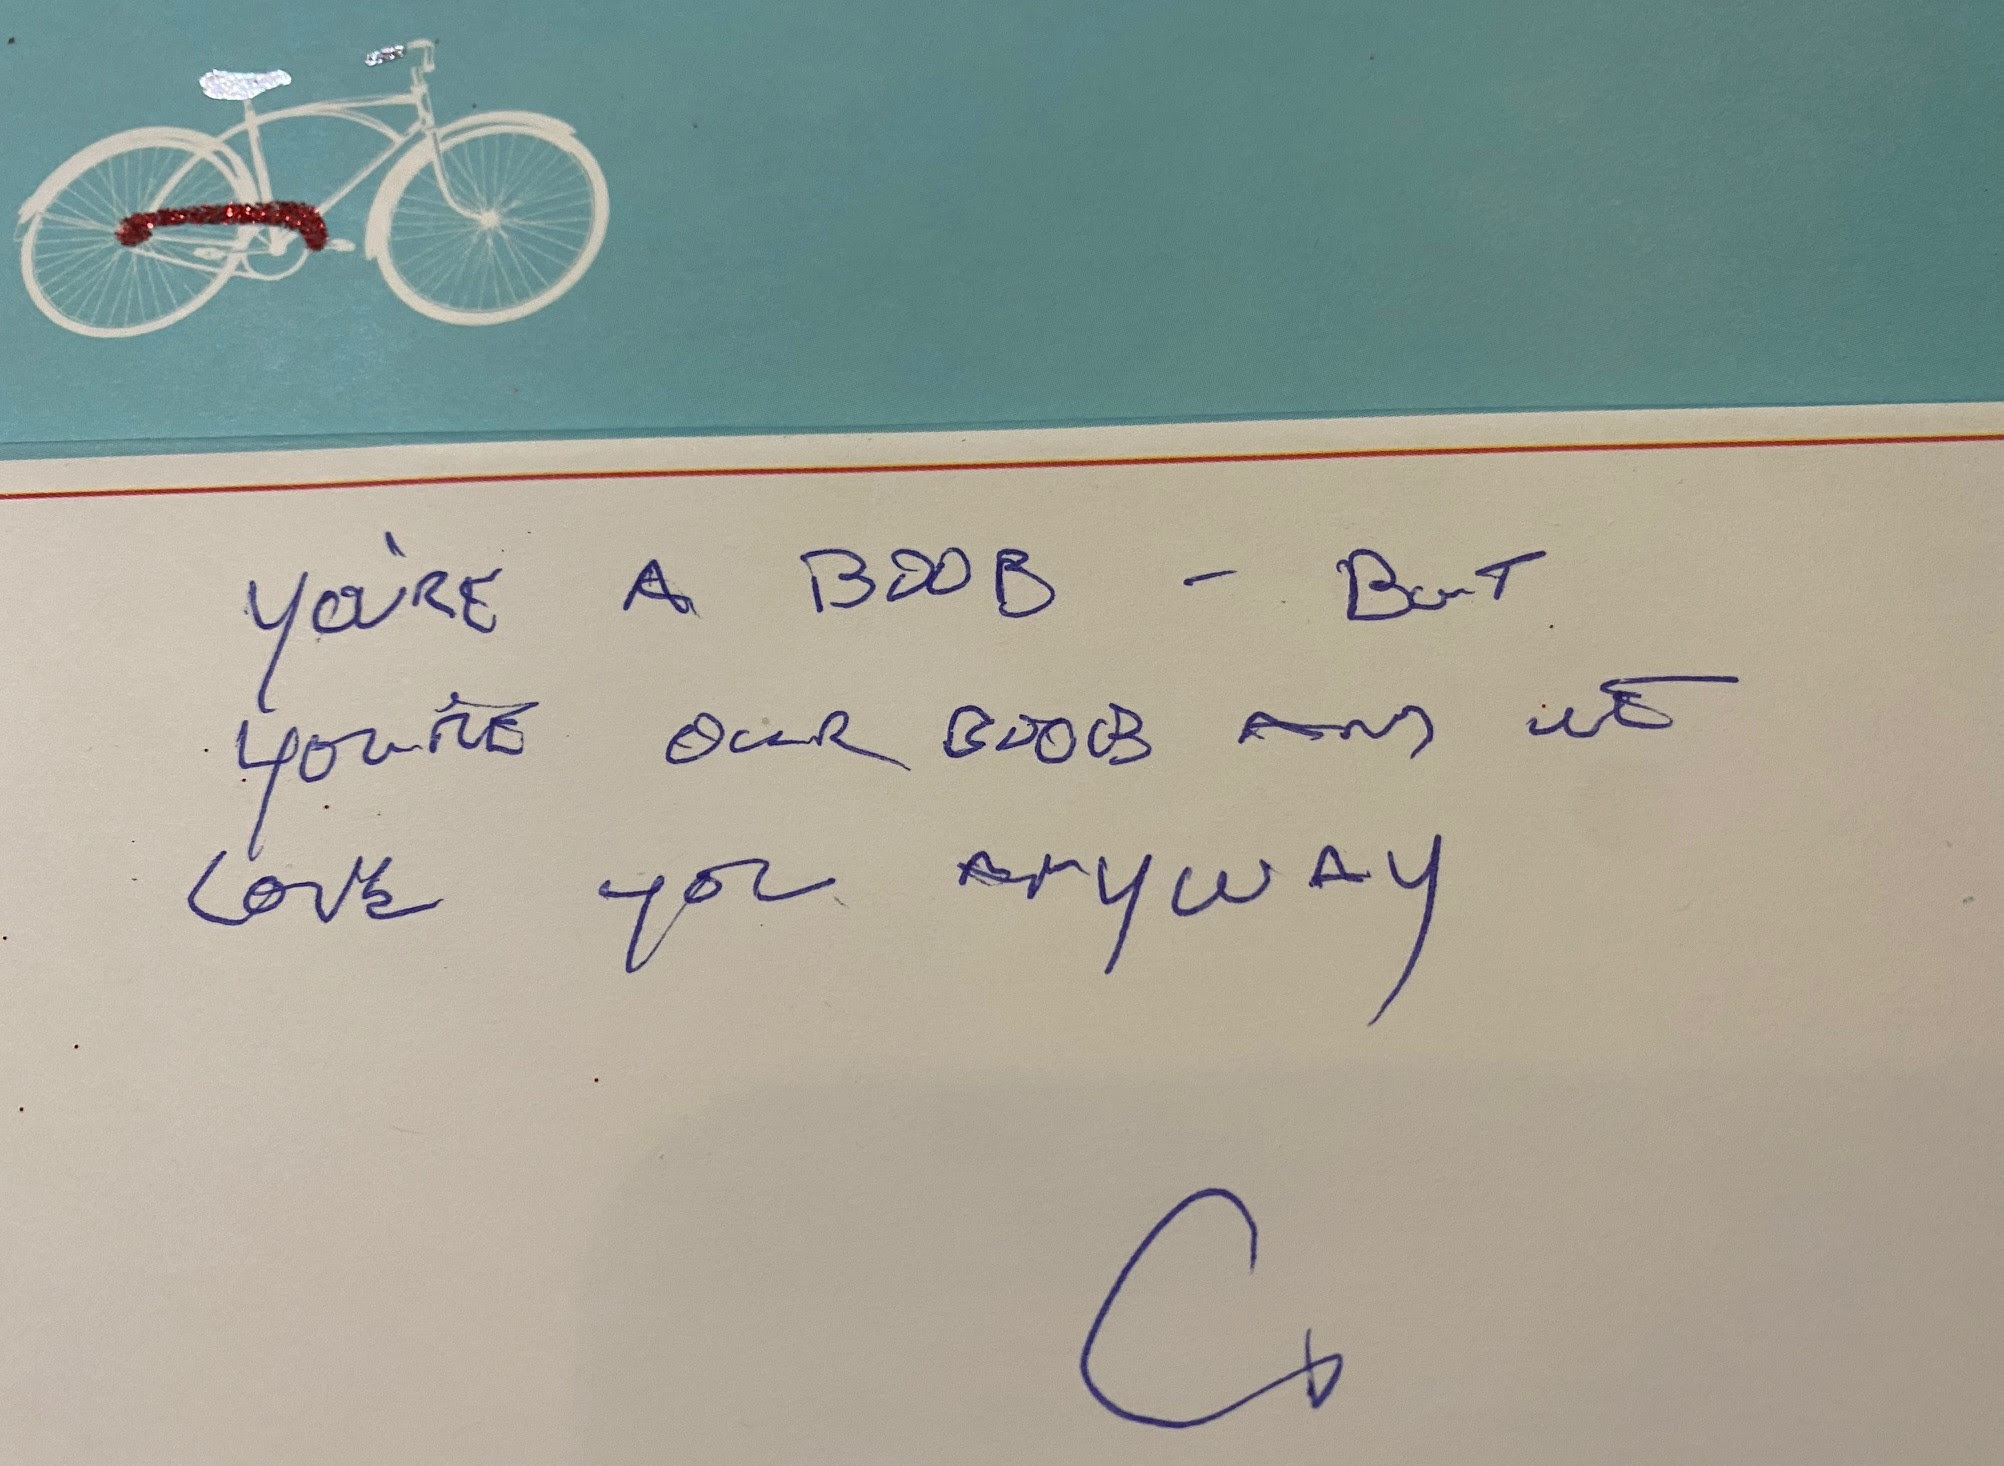 YOU'RE A BOOB - BUT
YOU'RE OUR BOOB AND WE
LOVE YOU ANYWAY